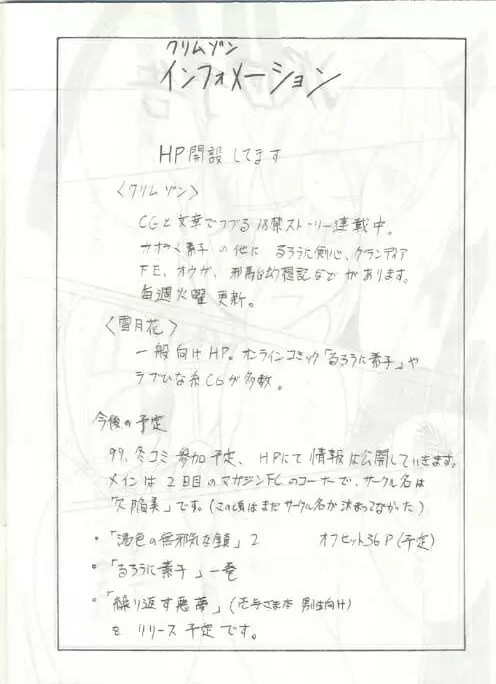 クリムゾン
インフォメーション
HP開設してます
〈クリムゾン〉
CGと文章でつづる18禁ストーリー連載中。
カオラ、素子の他に るろうに剣心、グランディア
FE、オウガ、邪馬台幻想記などがあります。
毎週火曜更新。
〈雪月花〉
一般向けHP。オンラインコミック「るろうに素子」や
ラブひな系CGが多数。
今後の予定
99.冬コミ参加予定、HPにて情報は公開していきます。
メインは2日目のマガジンFCのコーナーで、サークル名は
「欠陥美」です。(この頃はまだサークル名が決まってなかった)
・「褐色の無邪気な鎖」2 オフセット36P(予定)
・「るろうに素子」一巻
・「繰り返す悪夢」(壱与さま本 男性向け)
を リリース予定です。